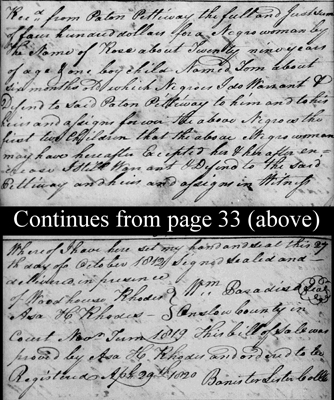 Recd. from Paton Pettiway the full and Just sum
of four hundred dollars for a Negro woman by
the Name of Rose about Twenty nine years
of age & one boy child Named Tom about
six months old which Negroes I do Warrant &
Defend to said Paton Pettiway to him and to his
heirs and assigns forever the above Negroes the
first two Children that the above Negro woman
may have hereafter Excepted
Warrant & Defend to the said
Pettiway and heirs and assigns in Witness
Continues from page 33 (above)
Whereof I have here set my hand and seal this 27
th day of October 1819 Signed sealed and
delivered in presence
of Woodhouse Rhodes } Wm. Paradise seal
Asa H Rhodes } Onslow County in
Court Novr Turm 1819 This bill of Sale was
proved by Asa H. Rhodes and ordered to be
Registered Apl. 29th 1820 Banister Lester